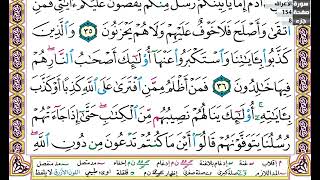 سورة الأعراف
صفحة 154
جزء 8
يَٰبَنِىٓ ءَادَمَ إِمَّا يَأْتِيَنَّكُمْ رُسُلٌ مِّنكُمْ يَقُصُّونَ عَلَيْكُمْ ءَايَٰتِى فَمَنِ
ٱتَّقَىٰ وَأَصْلَحَ فَلَا خَوْفٌ عَلَيْهِمْ وَلَا هُمْ يَحْزَنُونَ ٣٥ وَٱلَّذِينَ
كَذَّبُوا۟ بِـَٔايَٰتِنَا وَٱسْتَكْبَرُوا۟ عَنْهَآ أُو۟لَٰٓئِكَ أَصْحَٰبُ ٱلنَّارِ هُمْ
فِيهَا خَٰلِدُونَ ٣٦ فَمَنْ أَظْلَمُ مِمَّنِ ٱفْتَرَىٰ عَلَى ٱللَّهِ كَذِبًا أَوْ كَذَّبَ
بِـَٔايَٰتِهِۦٓ أُو۟لَٰٓئِكَ يَنَالُهُمْ نَصِيبُهُم مِّنَ ٱلْكِتَٰبِ حَتَّىٰٓ إِذَا جَآءَتْهُمْ
رُسُلُنَا يَتَوَفَّوْنَهُمْ قَالُوٓا۟ أَيْنَ مَا كُنتُمْ تَدْعُونَ مِن دُونِ ٱللَّهِ